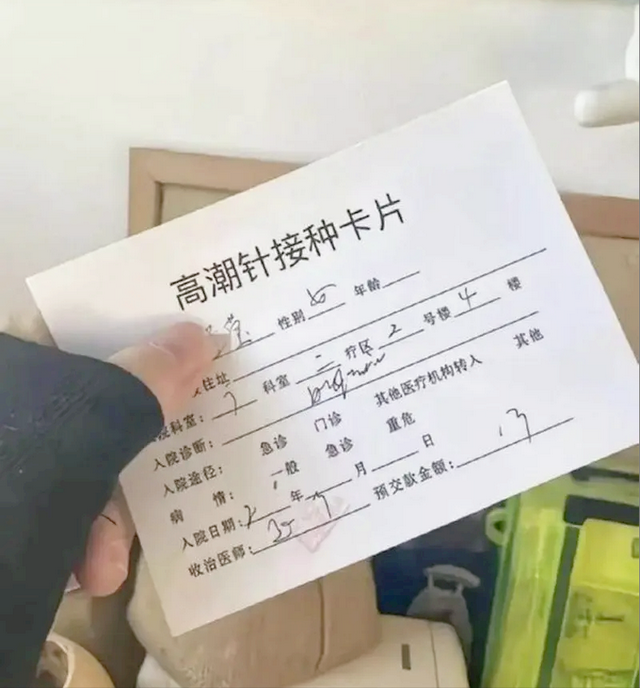 高潮针接种卡片
性别 女 年龄
住址
院科室： 科室 二 疗区 2 号楼 4 楼
入院诊断：
入院途径： 急诊 门诊 其他医疗机构转入 其他
病 情： 一般 急诊 重危
入院日期： 年 月 日
收治医师： 预交款金额：